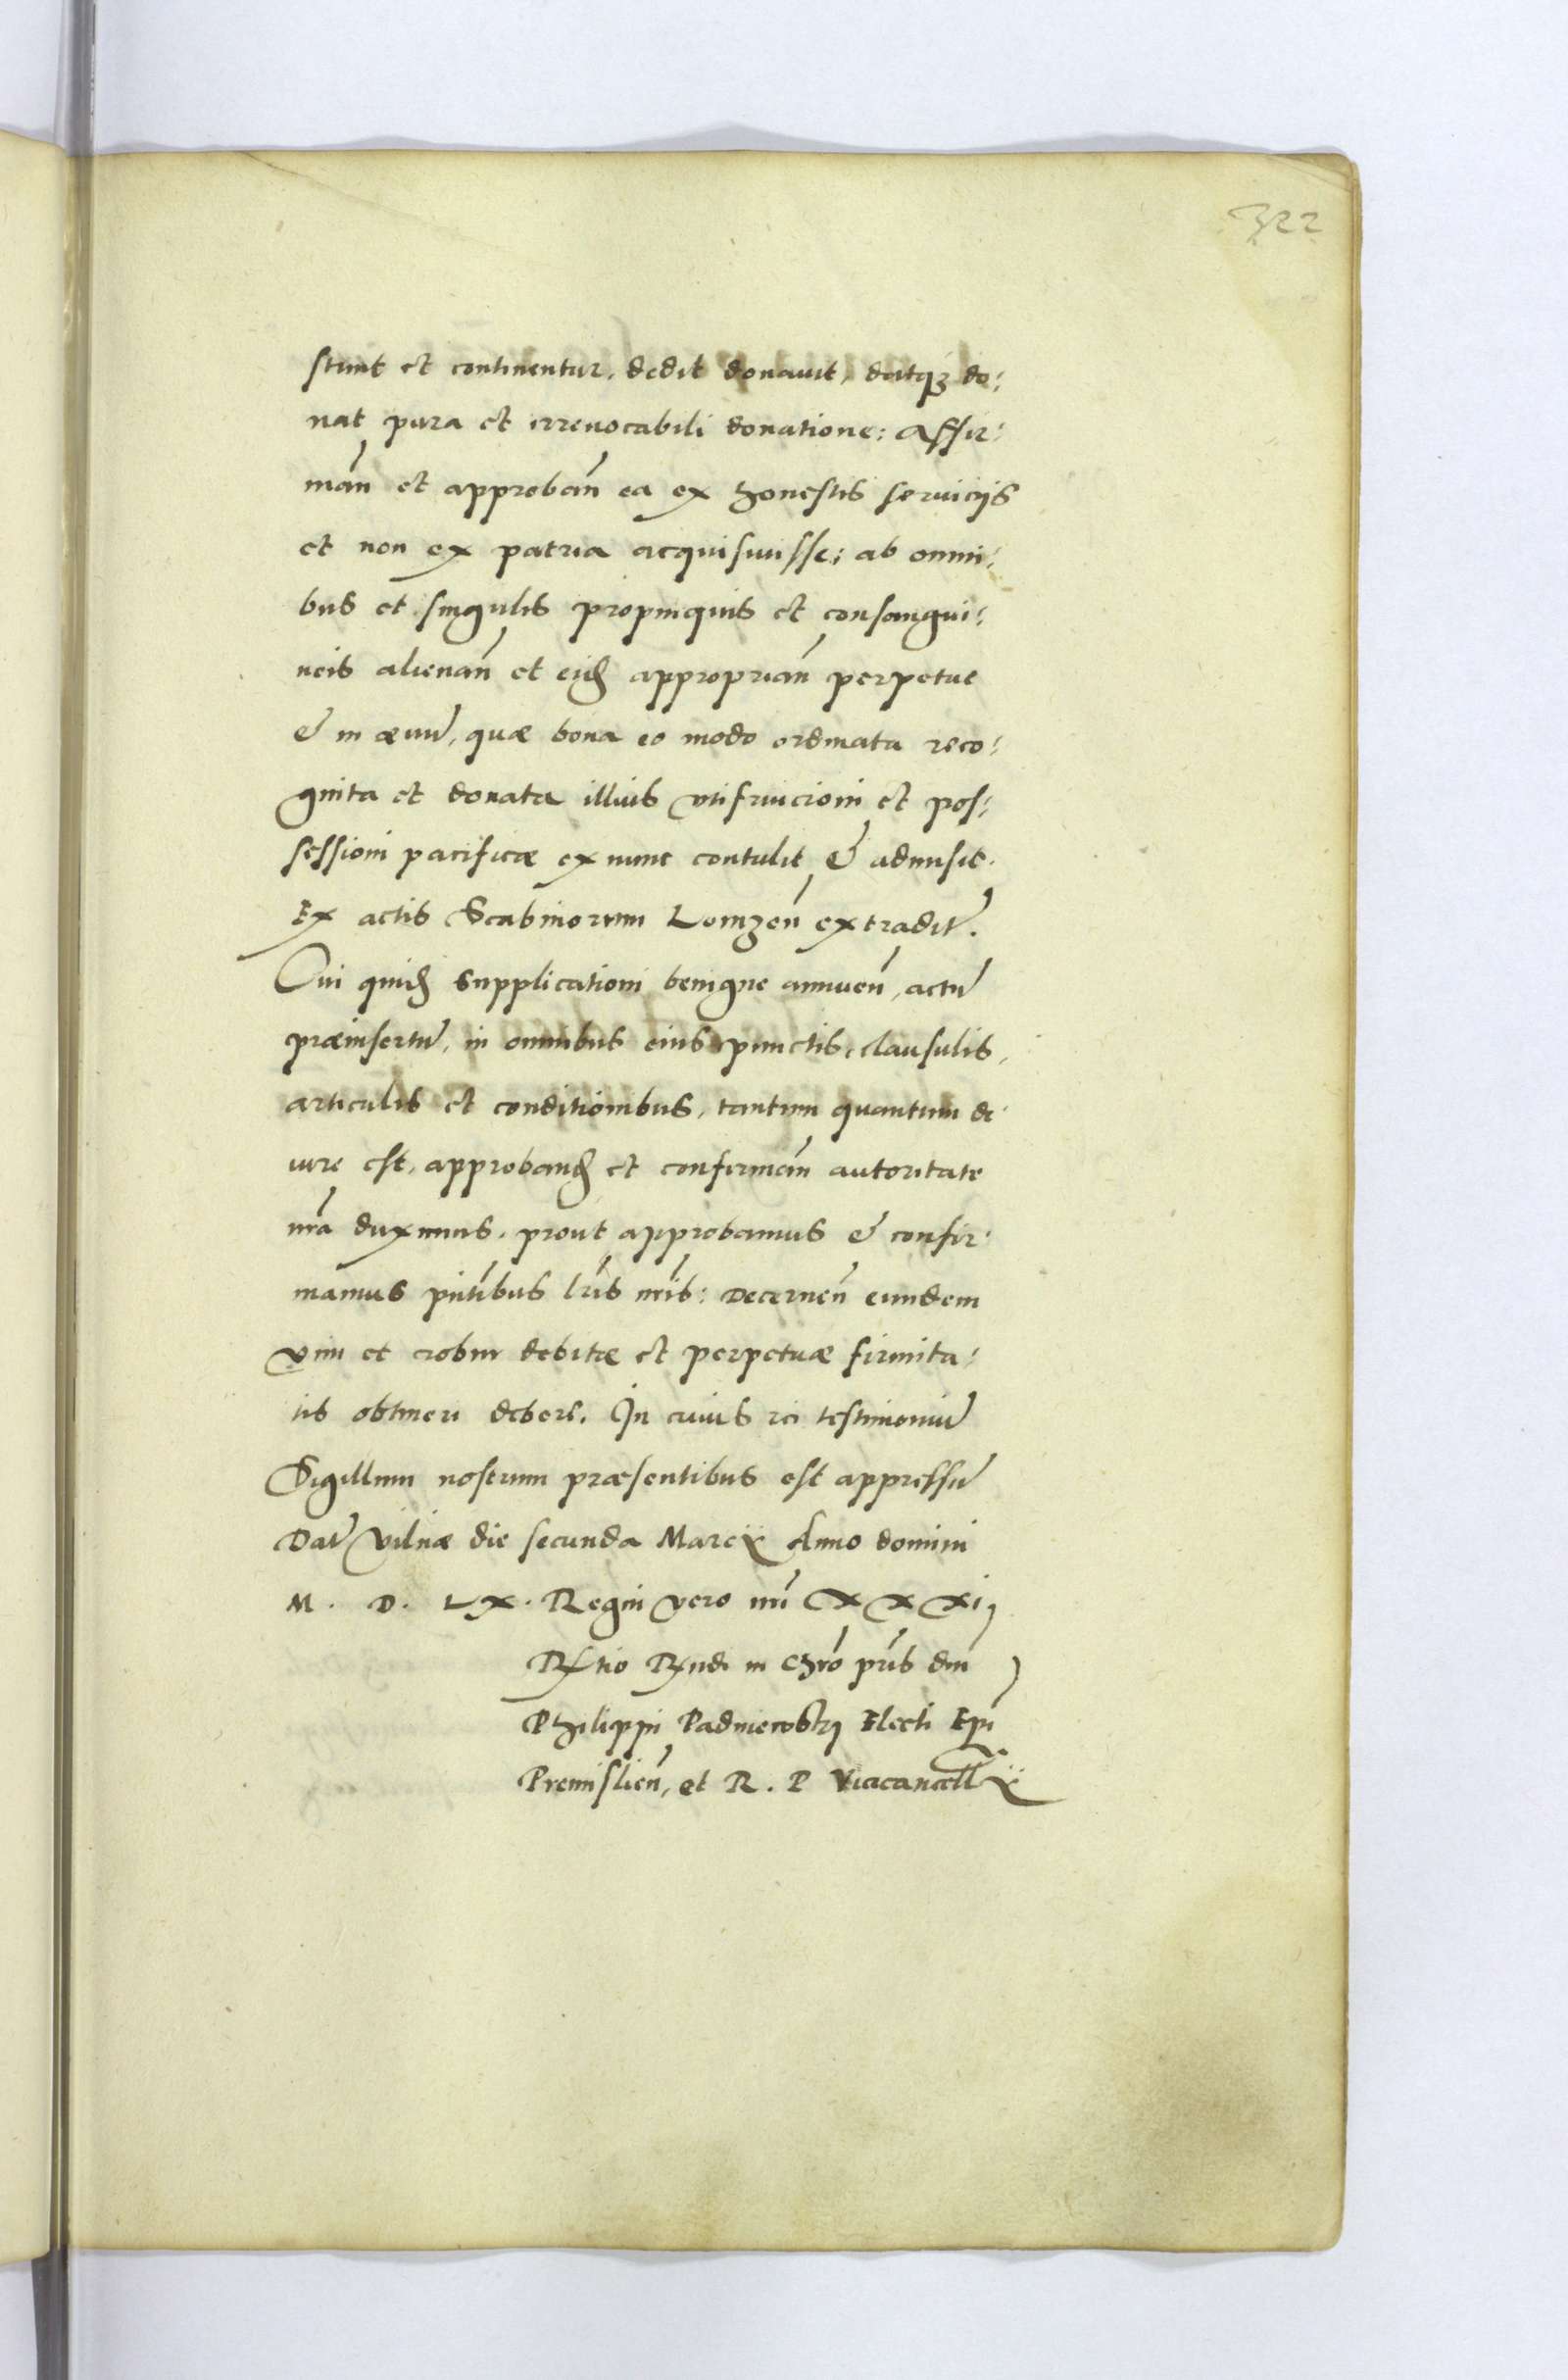 322
stunt et continentur, dedit donauit, datq₃ do:
nat pura et irreuocabili donatione: Affir:
mañ et approbañ ea ex honestis seruicijs
et non ex patria acquisiuisse: ab omni:
bus et singulis propinquis et consangui:
neis alienañ et eiđ appropriañ perpetue
& in æuū, quæ bona eo modo ordinata reco:
gnita et donata illius vtifruicioni et pos:
sessioni pacificæ ex nunc contulit & admisit.
Ex actis Scabinorum Lomzeñ extradit̃.
Cui quiđ supplicationi benigne annueñ, actū
præinsertū, in omnibus eius punctis, clausulis,
articulis et conditionibus, tantum quantum de
iure est, approbanđ et confirmañ autoritate
nr̃a duximus, prout approbamus & confir:
mamus pñtibus lr̃is nr̃is: Decerneñ eundem
vim et robur debitæ et perpetuæ firmita:
tis obtineri debere. In cuius rei testimoniū
Sigillum nostrum præsentibus est appressū
Dat̃ Vilnæ die secunda Marcij Anno domini
M. D. LX. Regni vero nr̃i XXXI,
Rl̃tio Rñdi in Chr̃o pr̃is dñi
Philippi Padniewsky Electi Ep̃i
Premislieñ, et R. P Vicecancellij